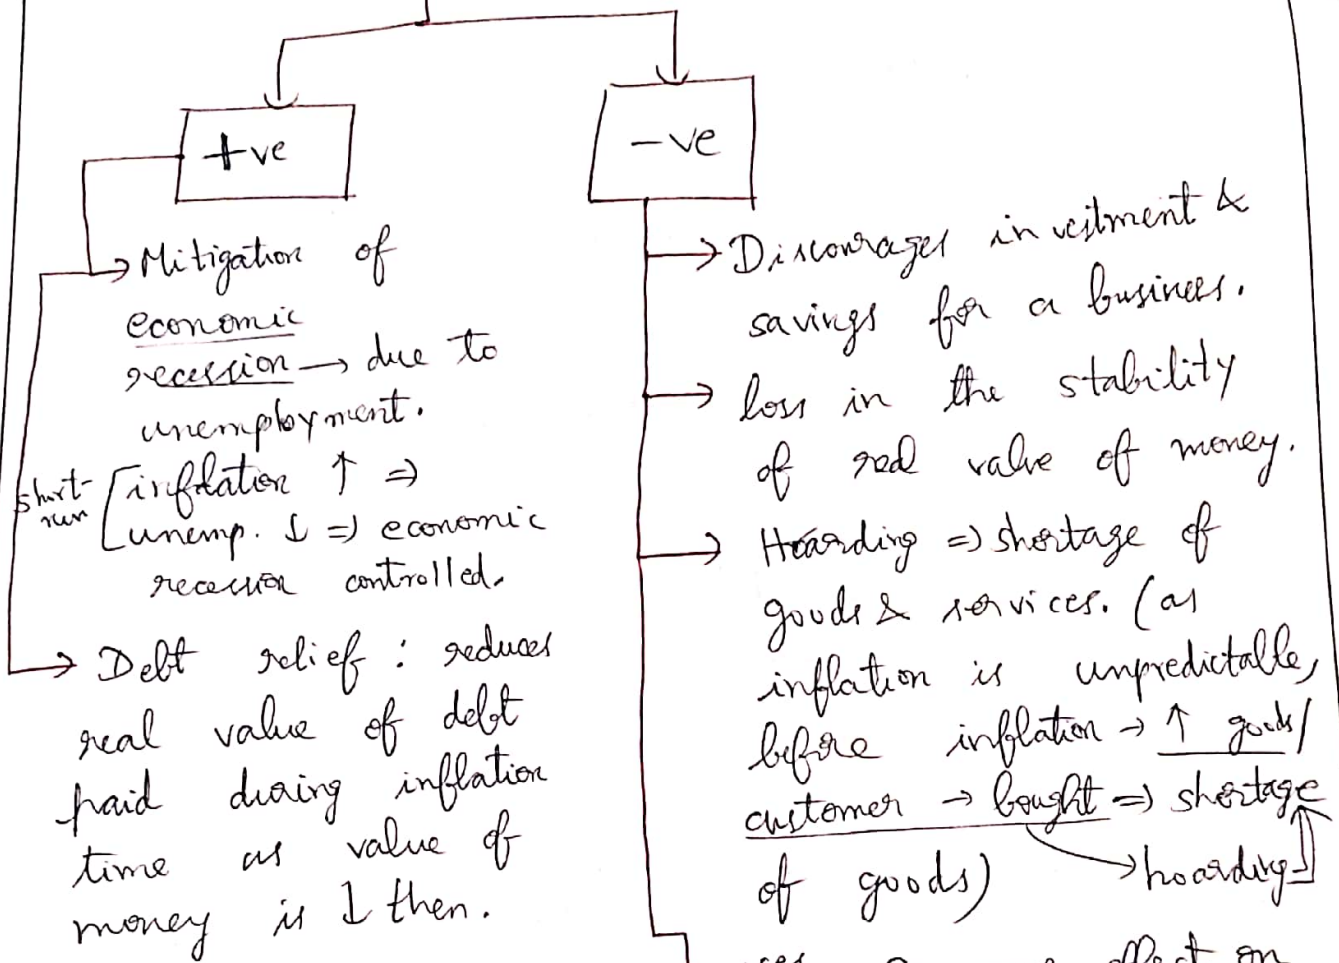 +ve
Mitigation of
economic
recession → due to
unemployment.
short-
run
inflation ↑ ⇒
unemp. ↓ ⇒ economic
recession controlled.
Debt relief : reduces
real value of debt
paid during inflation
time as value of
money is ↓ then.
-ve
Discourages investment &
savings for a business.
loss in the stability
of real value of money.
Hoarding ⇒ shortage of
goods & services. (as
inflation is unpredictable,
before inflation → ↑ goods/
customer → bought ⇒ shortage
→ hoarding
of goods)
effect on